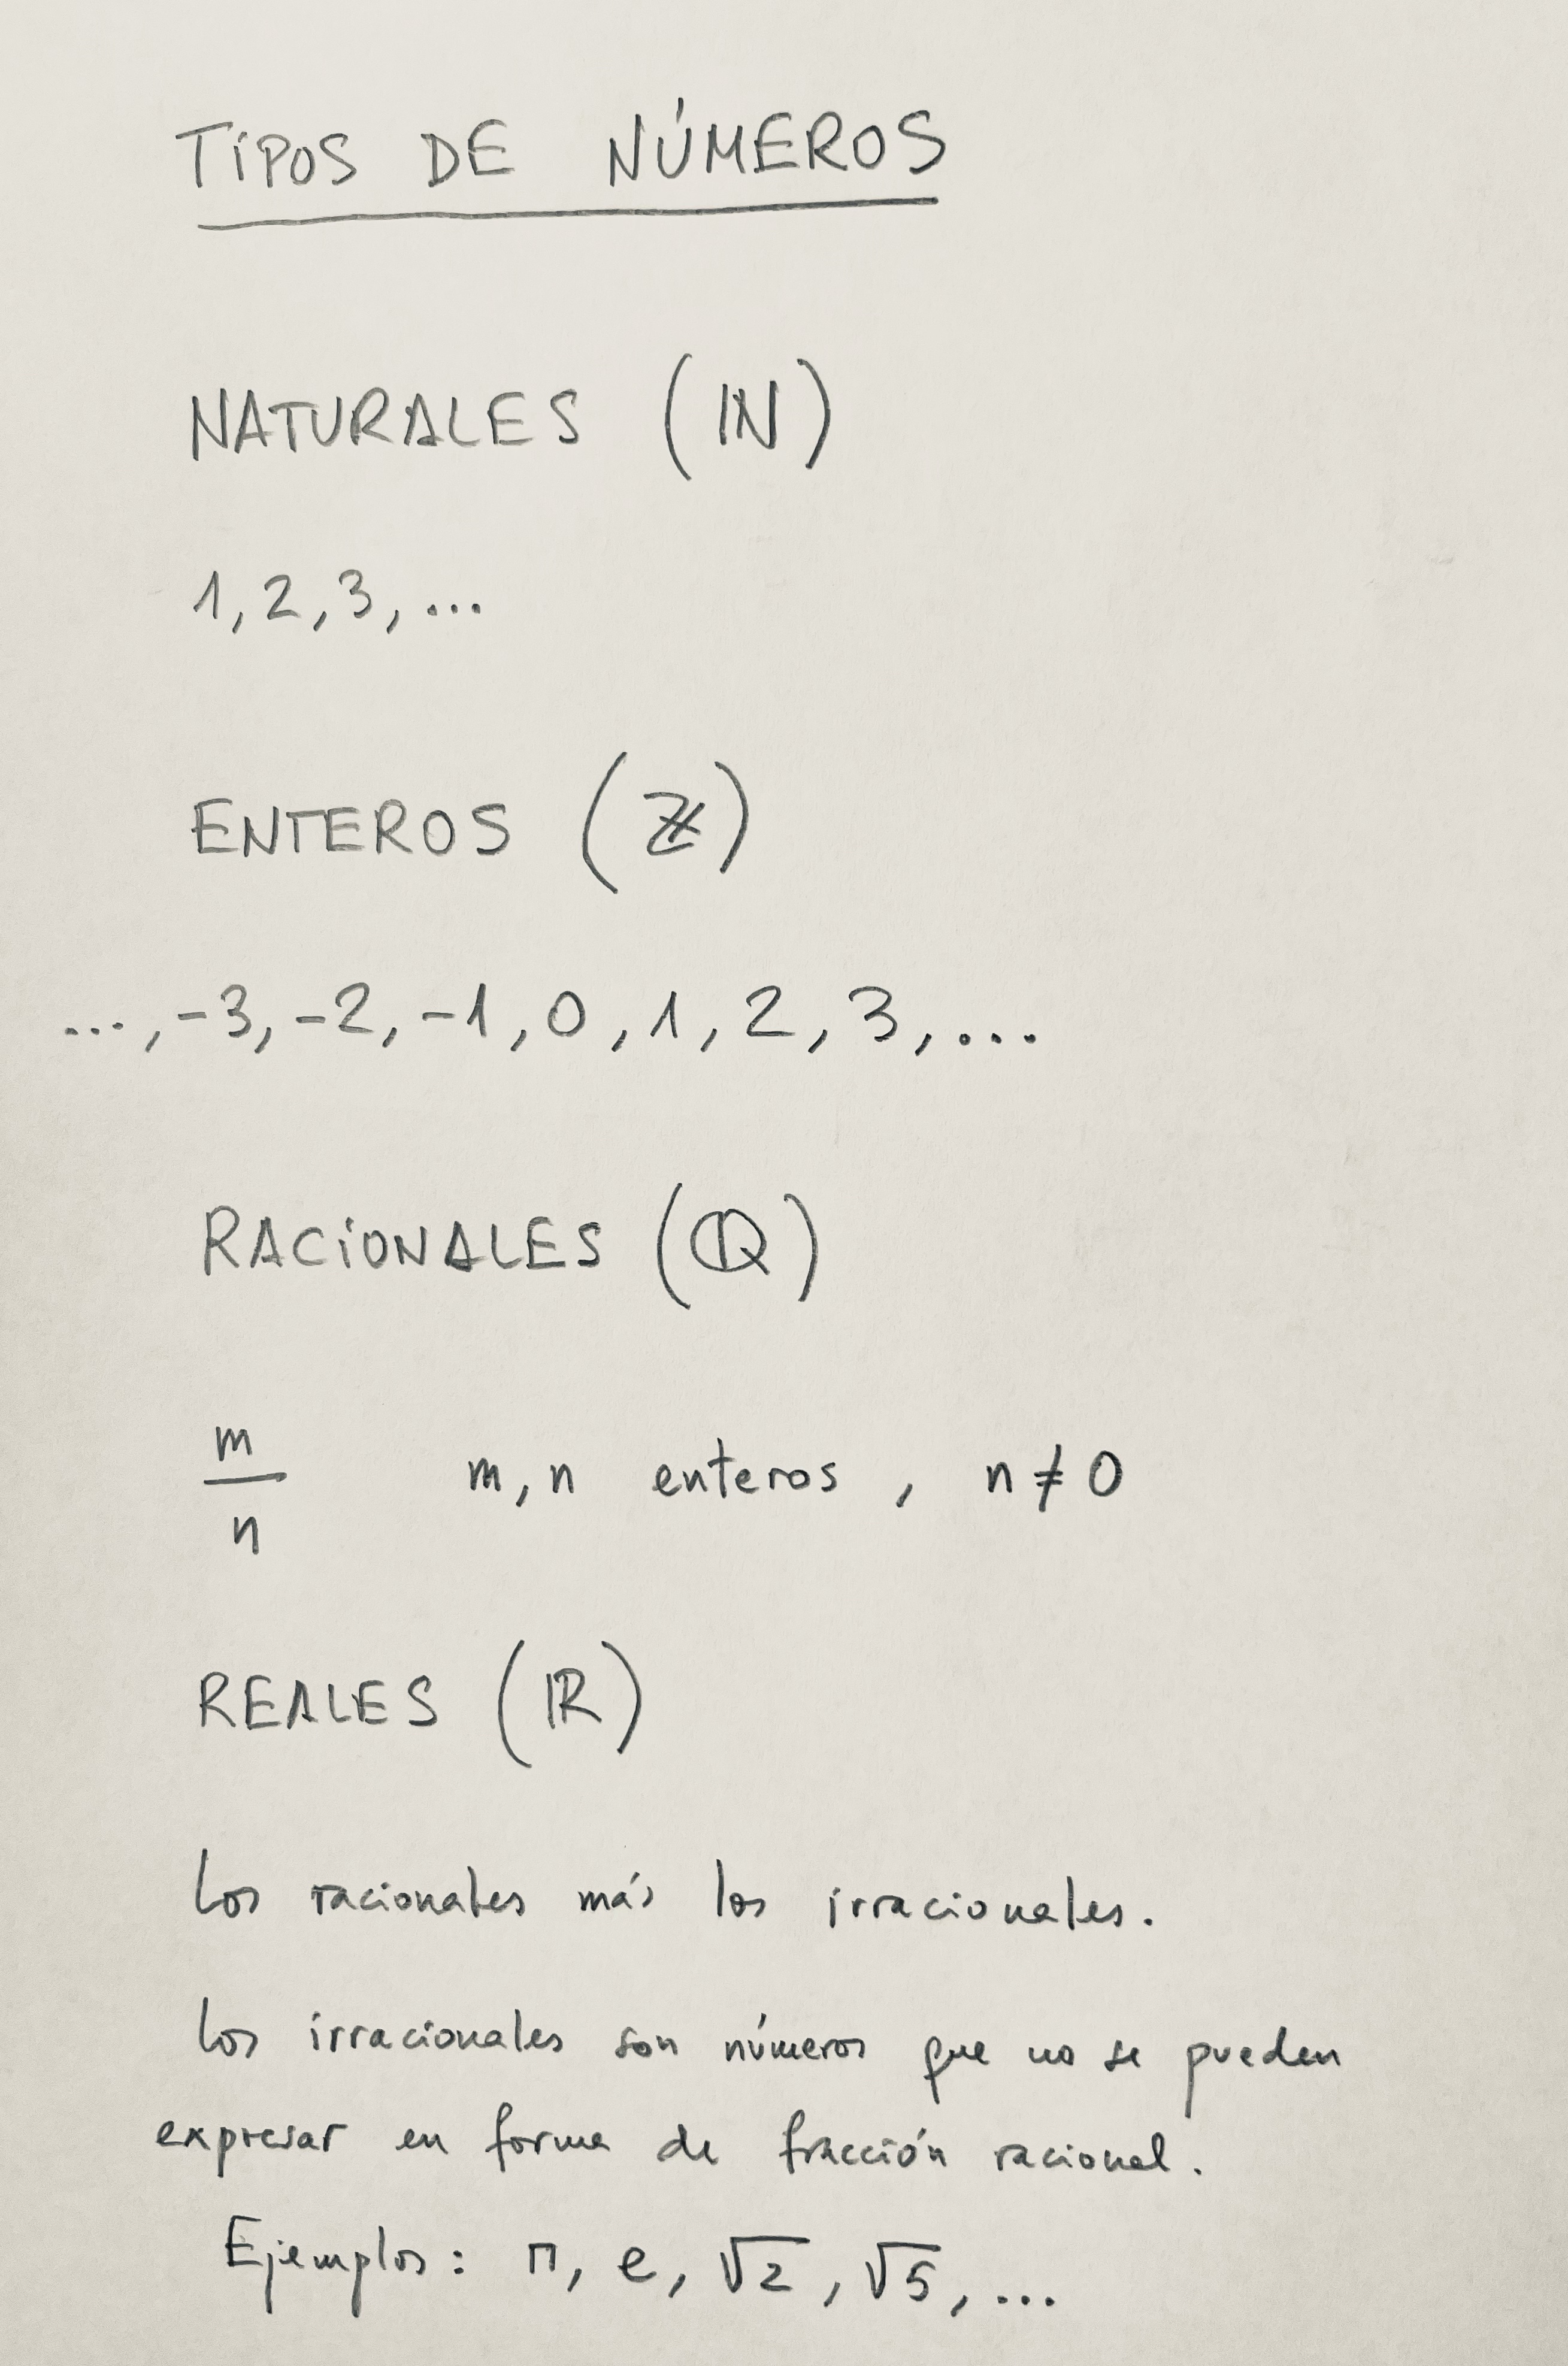 TIPOS DE NÚMEROS
NATURALES (ℕ)
1, 2, 3, ...
ENTEROS (ℤ)
..., -3, -2, -1, 0, 1, 2, 3, ...
RACIONALES (ℚ)
m/n  m, n enteros, n ≠ 0
REALES (ℝ)
Los racionales más los irracionales.
Los irracionales son números que no se pueden
expresar en forma de fracción racional.
Ejemplos: π, e, √2, √5, ...